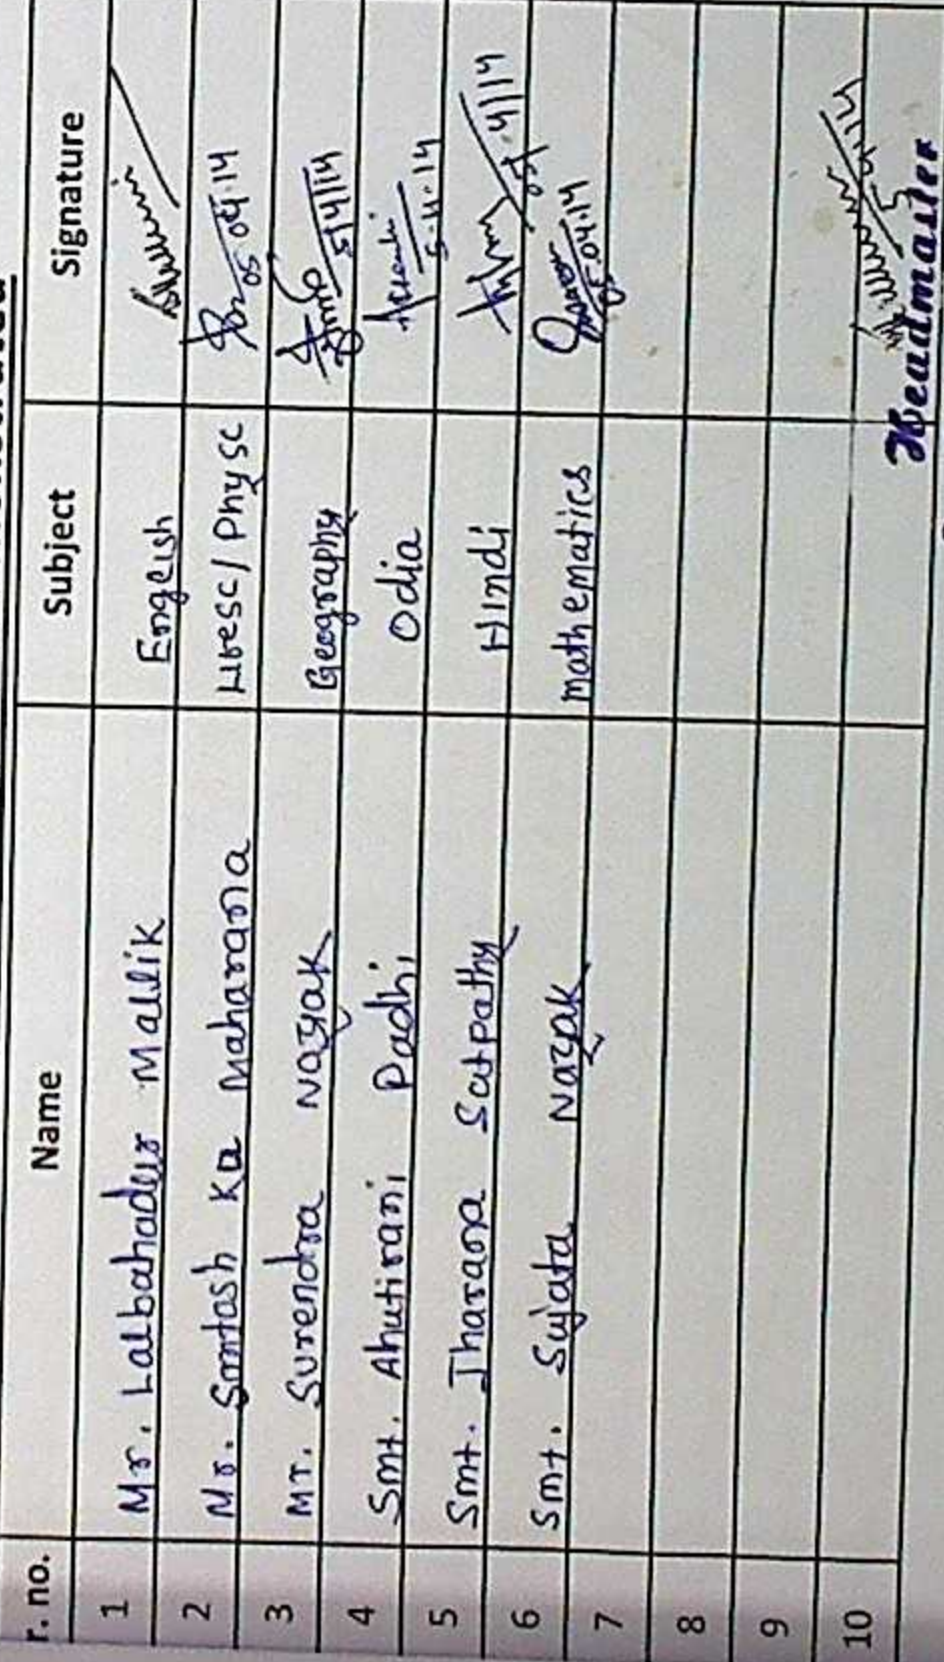 r. no. Name Subject Signature
1 Mr. Lalbahadur Mallik English
2 Mr. Santosh Ku Maharana Lifesc/Physc 05.04.14
3 Mr. Surendra Nayak Geography 5/4/14
4 Smt. Ahutirani Padhi Odia 5.4.14
5 Smt. Jharana Satpathy Hindi 05.4/14
6 Smt. Sujata Nayak Mathematics 05.04.14
7
8
9
10
5.4.14
Headmaster